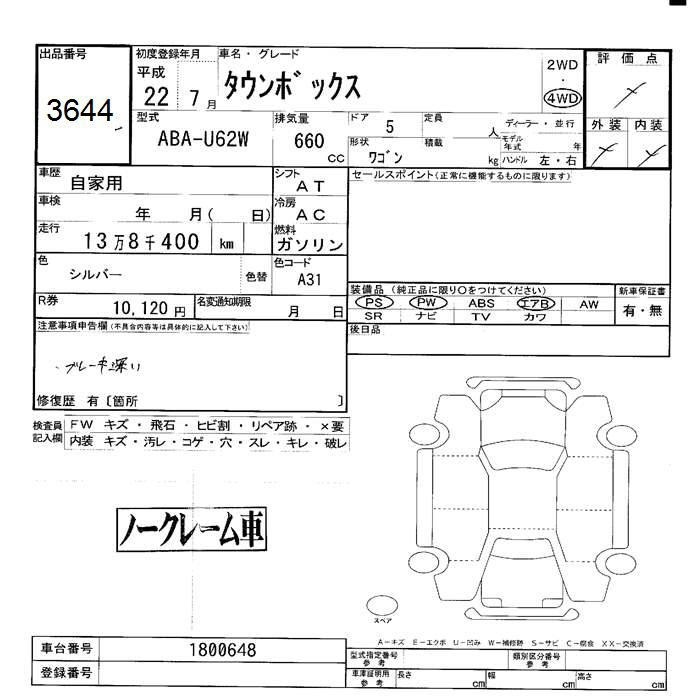 出品番号
3644
初度登録年月
平成
22 7 月
車名・グレード
タウンボックス
2WD
・
4WD
評価点
外装 内装
型式
ABA-U62W
排気量
660
cc
ドア 5
定員 人
ディーラー・並行
モデル年式 年
形状 ワゴン
積載 kg
ハンドル 左・右
車歴 自家用
シフト AT
セールスポイント(正常に機能するものに限ります)
車検 年 月( 日)
冷房 AC
走行 13万8千400 km
燃料 ガソリン
色 シルバー 色替
色コード A31
装備品 (純正品に限り○をつけてください)
新車保証書
PS PW ABS エアB AW
SR ナビ TV カワ
有・無
R券 10,120円
名変通知期限 月 日
後日品
注意事項申告欄(不具合内容等は具体的に記入して下さい)
・ブレーキ深い
修復歴 有〔箇所 〕
検査員記入欄
FW キズ・飛石・ヒビ割・リペア跡・×要
内装 キズ・汚レ・コゲ・穴・スレ・キレ・破レ
ノークレーム車
スペア
A−キズ E−エクボ U−凹み W−補修跡 S−サビ C−腐食 XX−交換済
車台番号 1800648
型式指定番号 参考
類別区分番号 参考
登録番号
車庫証明用 参考
長さ cm 幅 cm 高さ cm